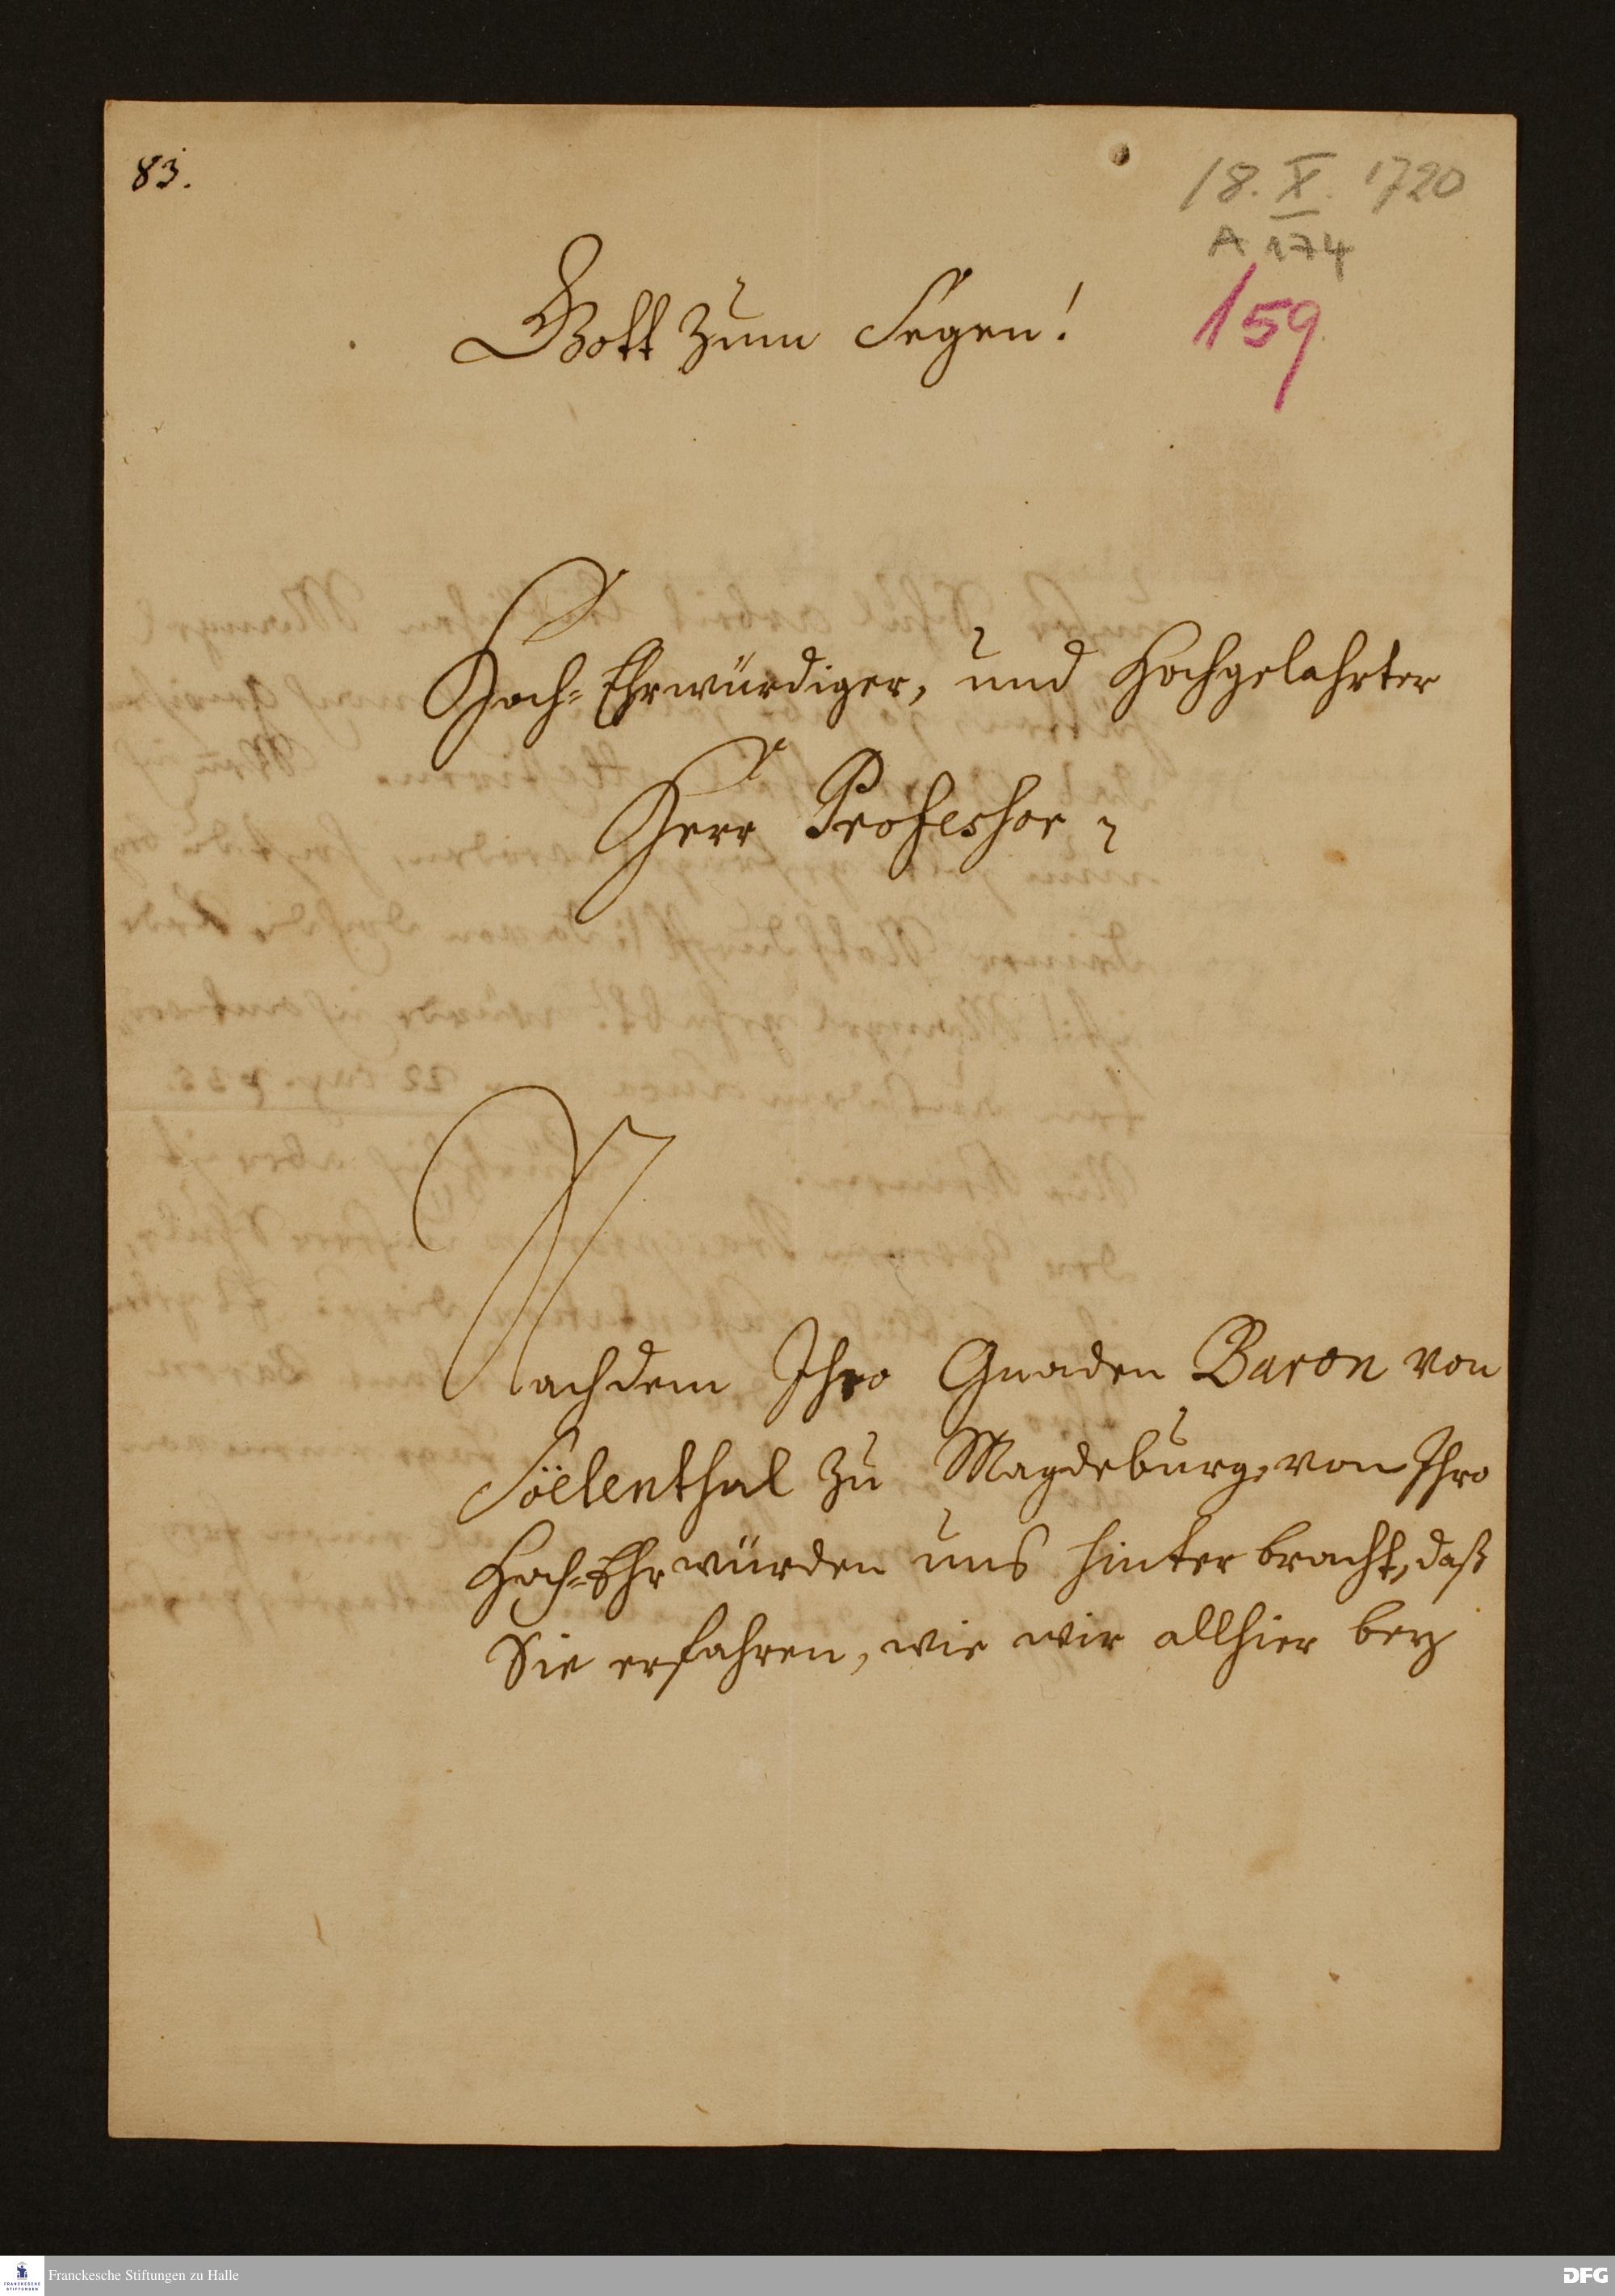 83.
18. X. 1720
A 174
159
Gott zum Segen!
Hoch-Ehrwürdiger, und Hochgelahrter
Herr Professor
Nachdem Ihro Gnaden Baron von
Söelenthal zu Magdeburg, von Ihro
Hoch-Ehrwürden uns hinterbracht, daß
Sie erfahren, wie wir allhier bey
Franckesche Stiftungen zu Halle
FRANCKESCHE
STIFTUNGEN
DFG